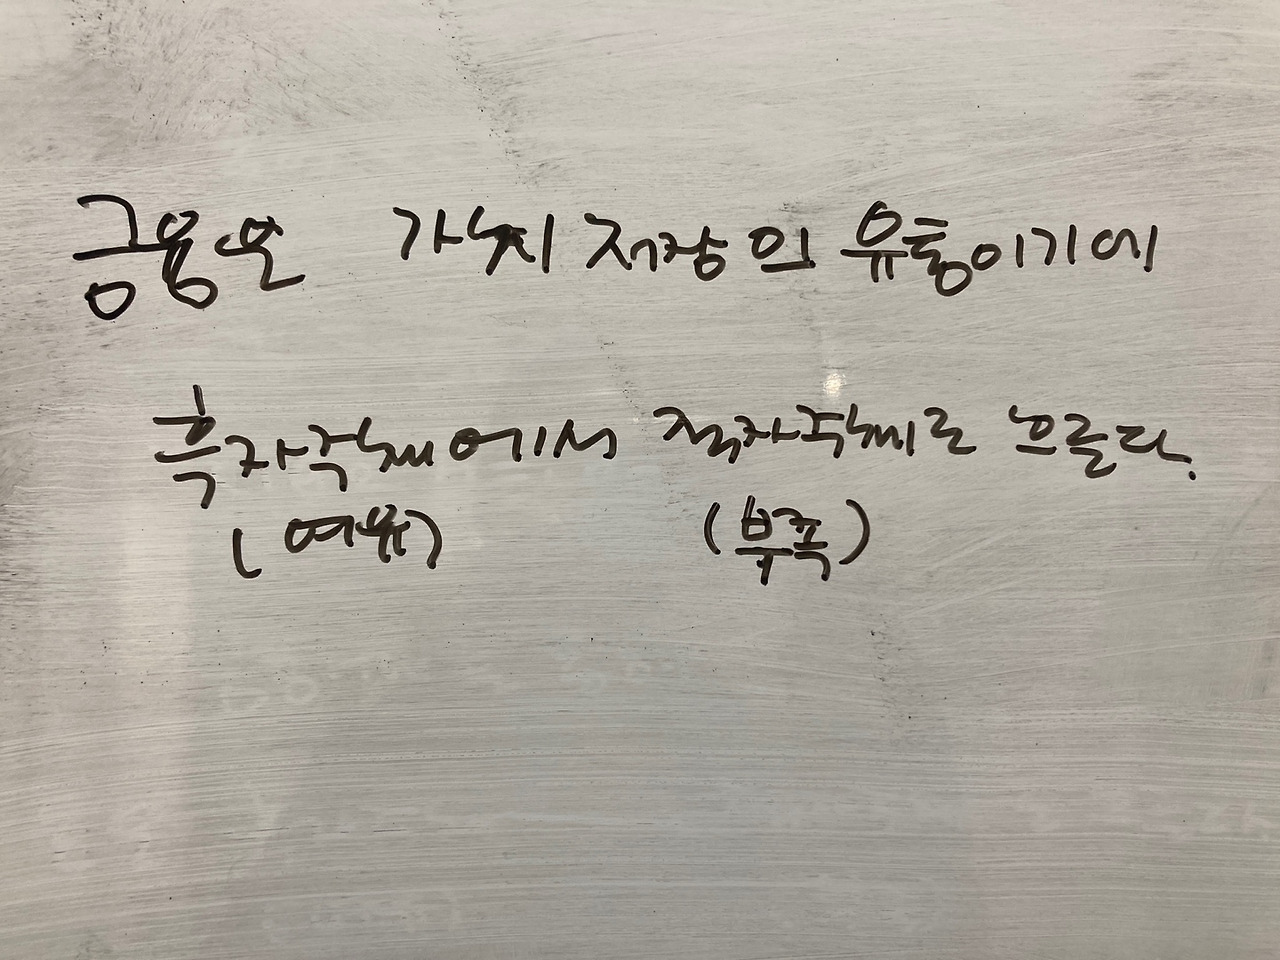 금융은 가치 저장의 유통이기에
흑자주체에서 적자주체로 흐른다.
(여유) (부족)